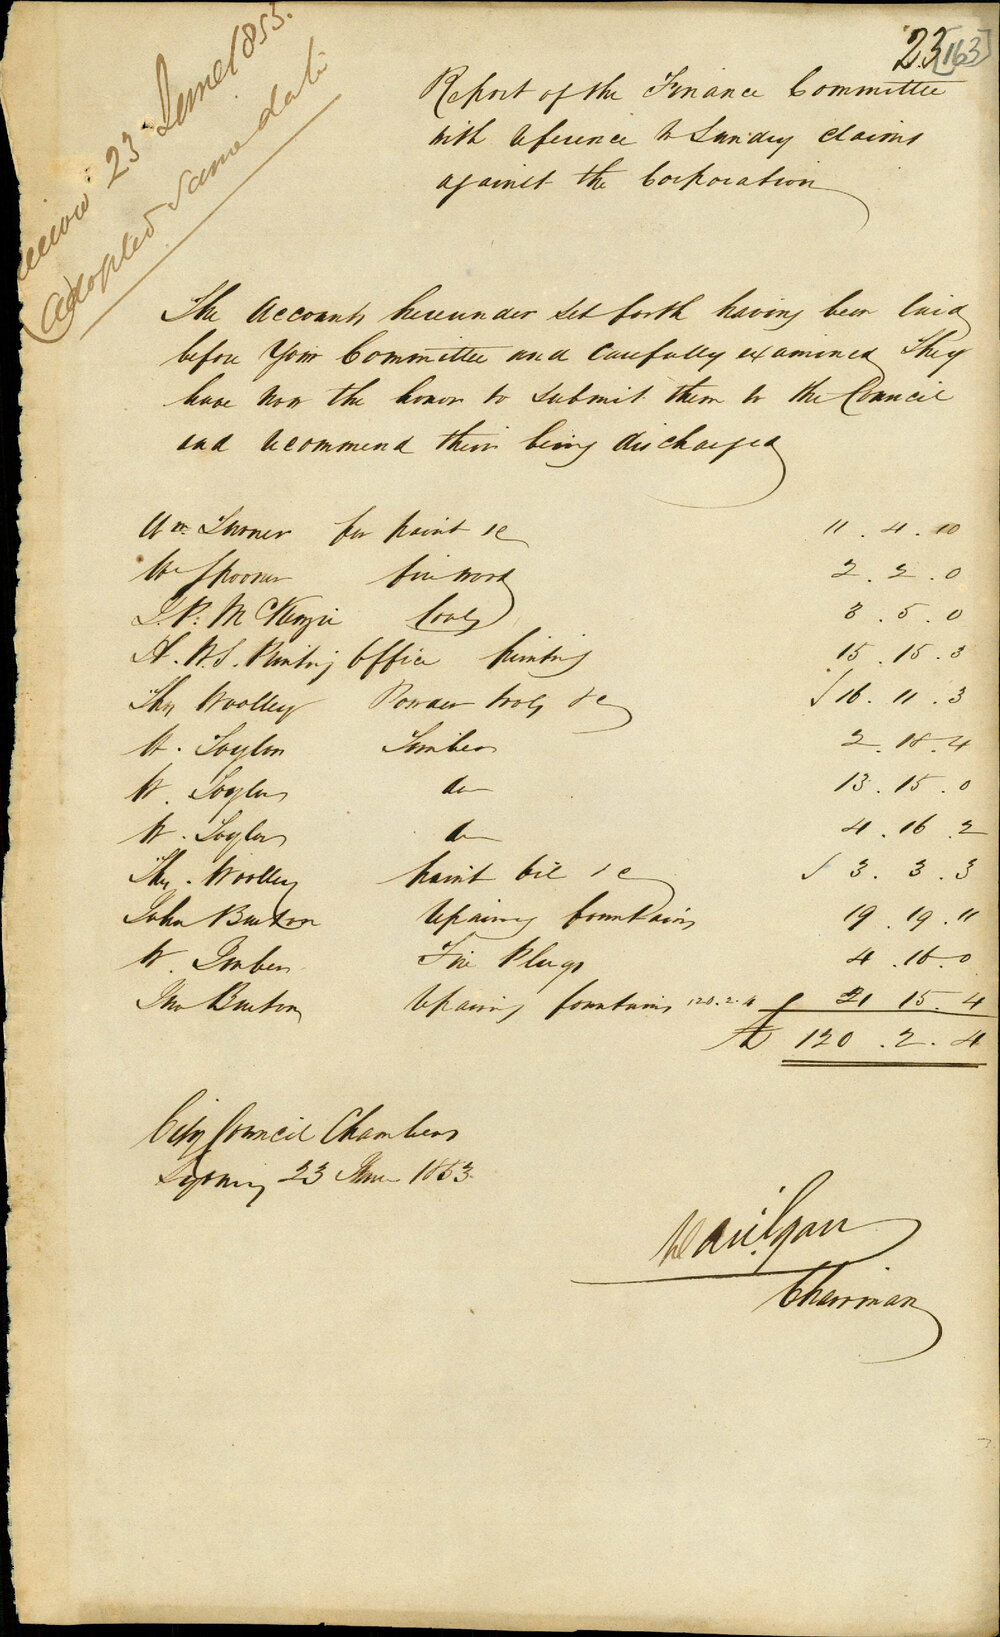 23 [163]
23 June 1853.
Adopted same date
Report of the Finance Committee
with reference to Sundry claims
against the Corporation
The Accounts hereunder set forth having been laid
before Your Committee and carefully examined They
have now the honor to submit them to the Council
and recommend their being discharged
Wm Turner for paint &c 11 . 4 . 10
Wm Spooner firewood 2 . 2 . 0
McKenzie Coals 3 . 5 . 0
Printing Office printing 15 . 15 . 3
Thos Woolley Powder tools &c 16 . 11 . 3
W. Taylor Timber 2 . 18 . 4
W. Taylor do 13 . 15 . 0
W. Taylor do 4 . 16 . 2
Thos. Woolley paint oil &c 3 . 3 . 3
John Burton repairing fountains 19 . 19 . 11
W. Fire Plugs 4 . 16 . 0
Jno Burton repairing fountains 120 . 2 . 4 21 15 . 4
£ 120 . 2 . 4
City Council Chambers
Sydney 23 June 1853
Dan. Egan
Chairman